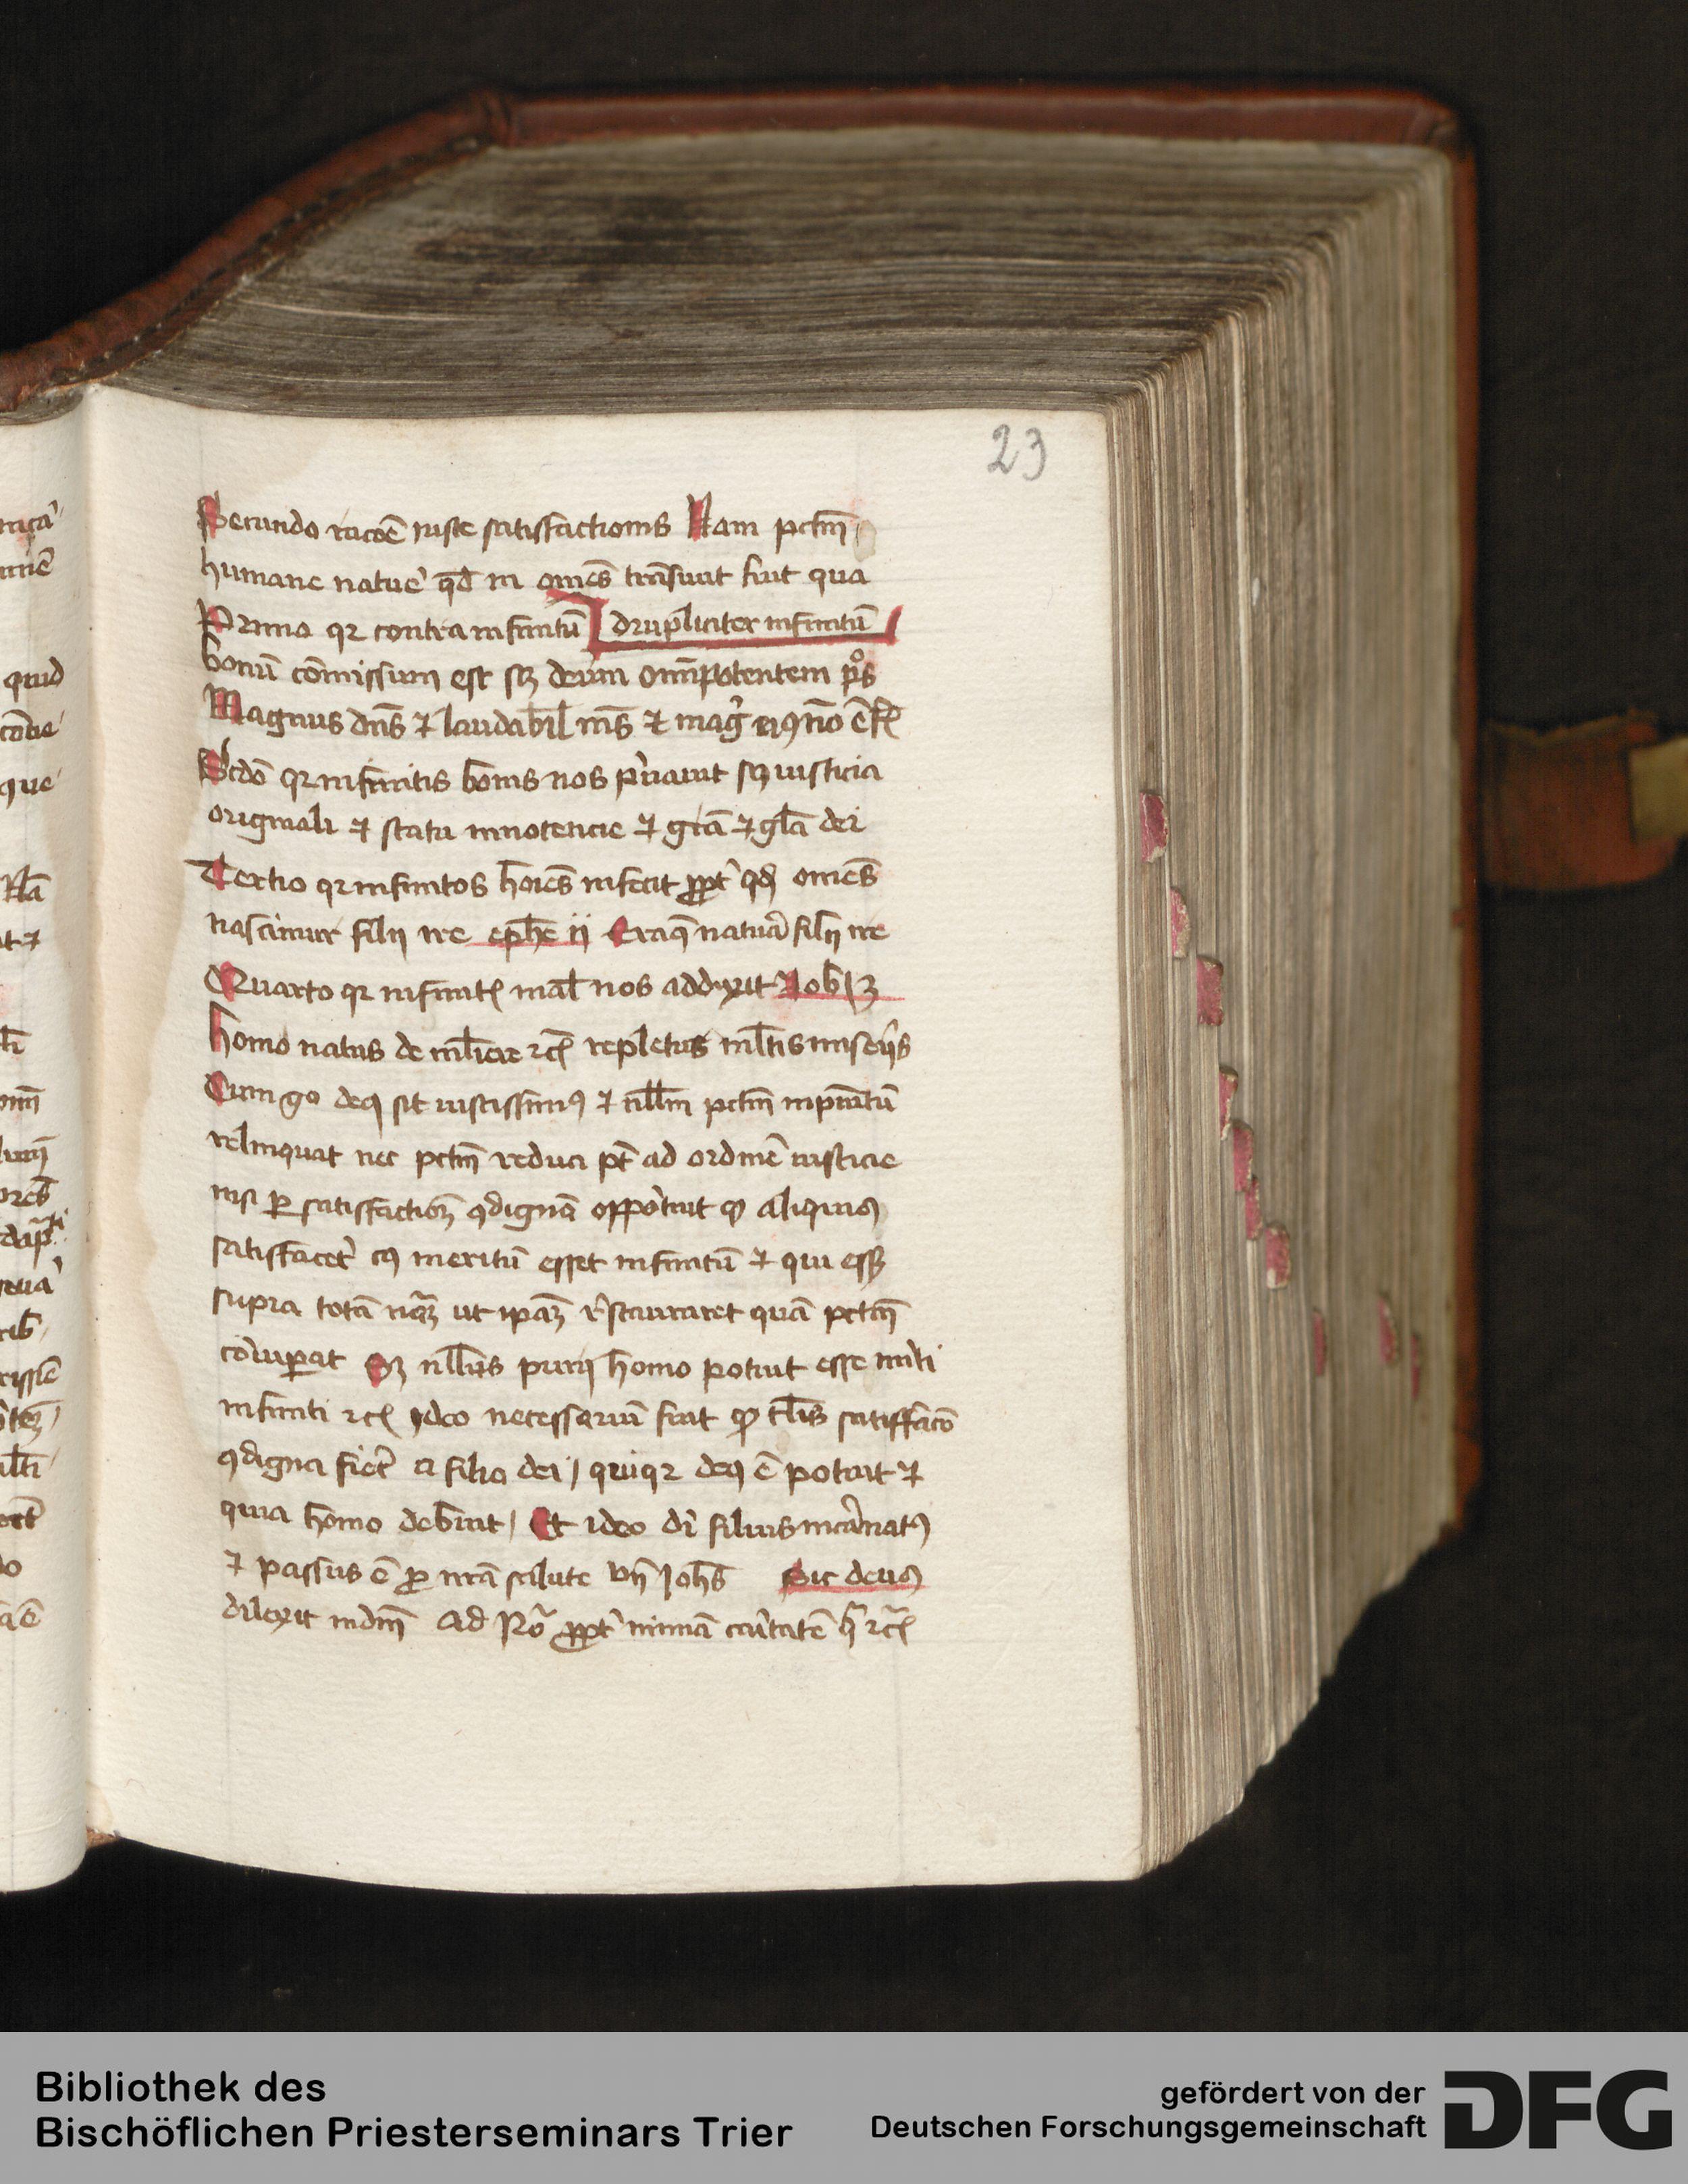 23
Secundo racoē iuste satisfactionis Nam pctm̄
humane natuē qđ in om̄es trāsiuit fuit qua
Primo qz contra infinitū drupliciter infinitū
bonū cōmissum est sz deum om̄ipotentem pͦs
Magnus dn̄s ⁊ laudabil nīs ⁊ mag̉ eiꝯ nō ē f
Scdō qz infinitis bonis nos p̉uauit sz iusticia
originali ⁊ statu innotencie ⁊ grā ⁊ gl̄a dei
Tertio qz infinitos hōies infecit ꝓpt̉ qđ om̄es
nascimur filij ire ephē ij Eraꝯ natuā filij ire
Quarto qz infinitꝭ mal̄ nos adduxit Job
homo natus de ml̄iere ⁊cꝭ repletus ml̄tis miserijs
Cum go deꝯ sit iustissimꝯ ⁊ nll̄m pctm̄ inpunitū
relinquat nec pctm̄ reduci pt̄ ad ordinē iusticie
nisi ꝑ satisfactiōꝫ ꝯdignā opportuit ꝙ aliquis
satisfacet̉ cꝯ meritū esset infinitū ⁊ qui esset
supra totā nāꝫ ut ipāꝫ r̉stauraret quā pctm̄
corrūperat Sꝫ nll̄us purꝯ homo potuit esse m̉iti
infiniti ⁊cꝭ ydeo necessariū fuit ꝙ tl̄is satisffacō
ꝯdigna fiet̉ a filio dei / qui qz deꝯ ē potuit ⁊
quia homo debuit / Et ideo di filius incarnatꝯ
⁊ passus ē ꝓ nrā salute vn̄ Joh̄s Sic deus
dilexit mdm̄ Ad Ro ꝓpt̉ nimiā caritatē ⁊cꝭ
Bibliothek des
Bischöflichen Priesterseminars Trier
gefördert von der
Deutschen Forschungsgemeinschaft
DFG